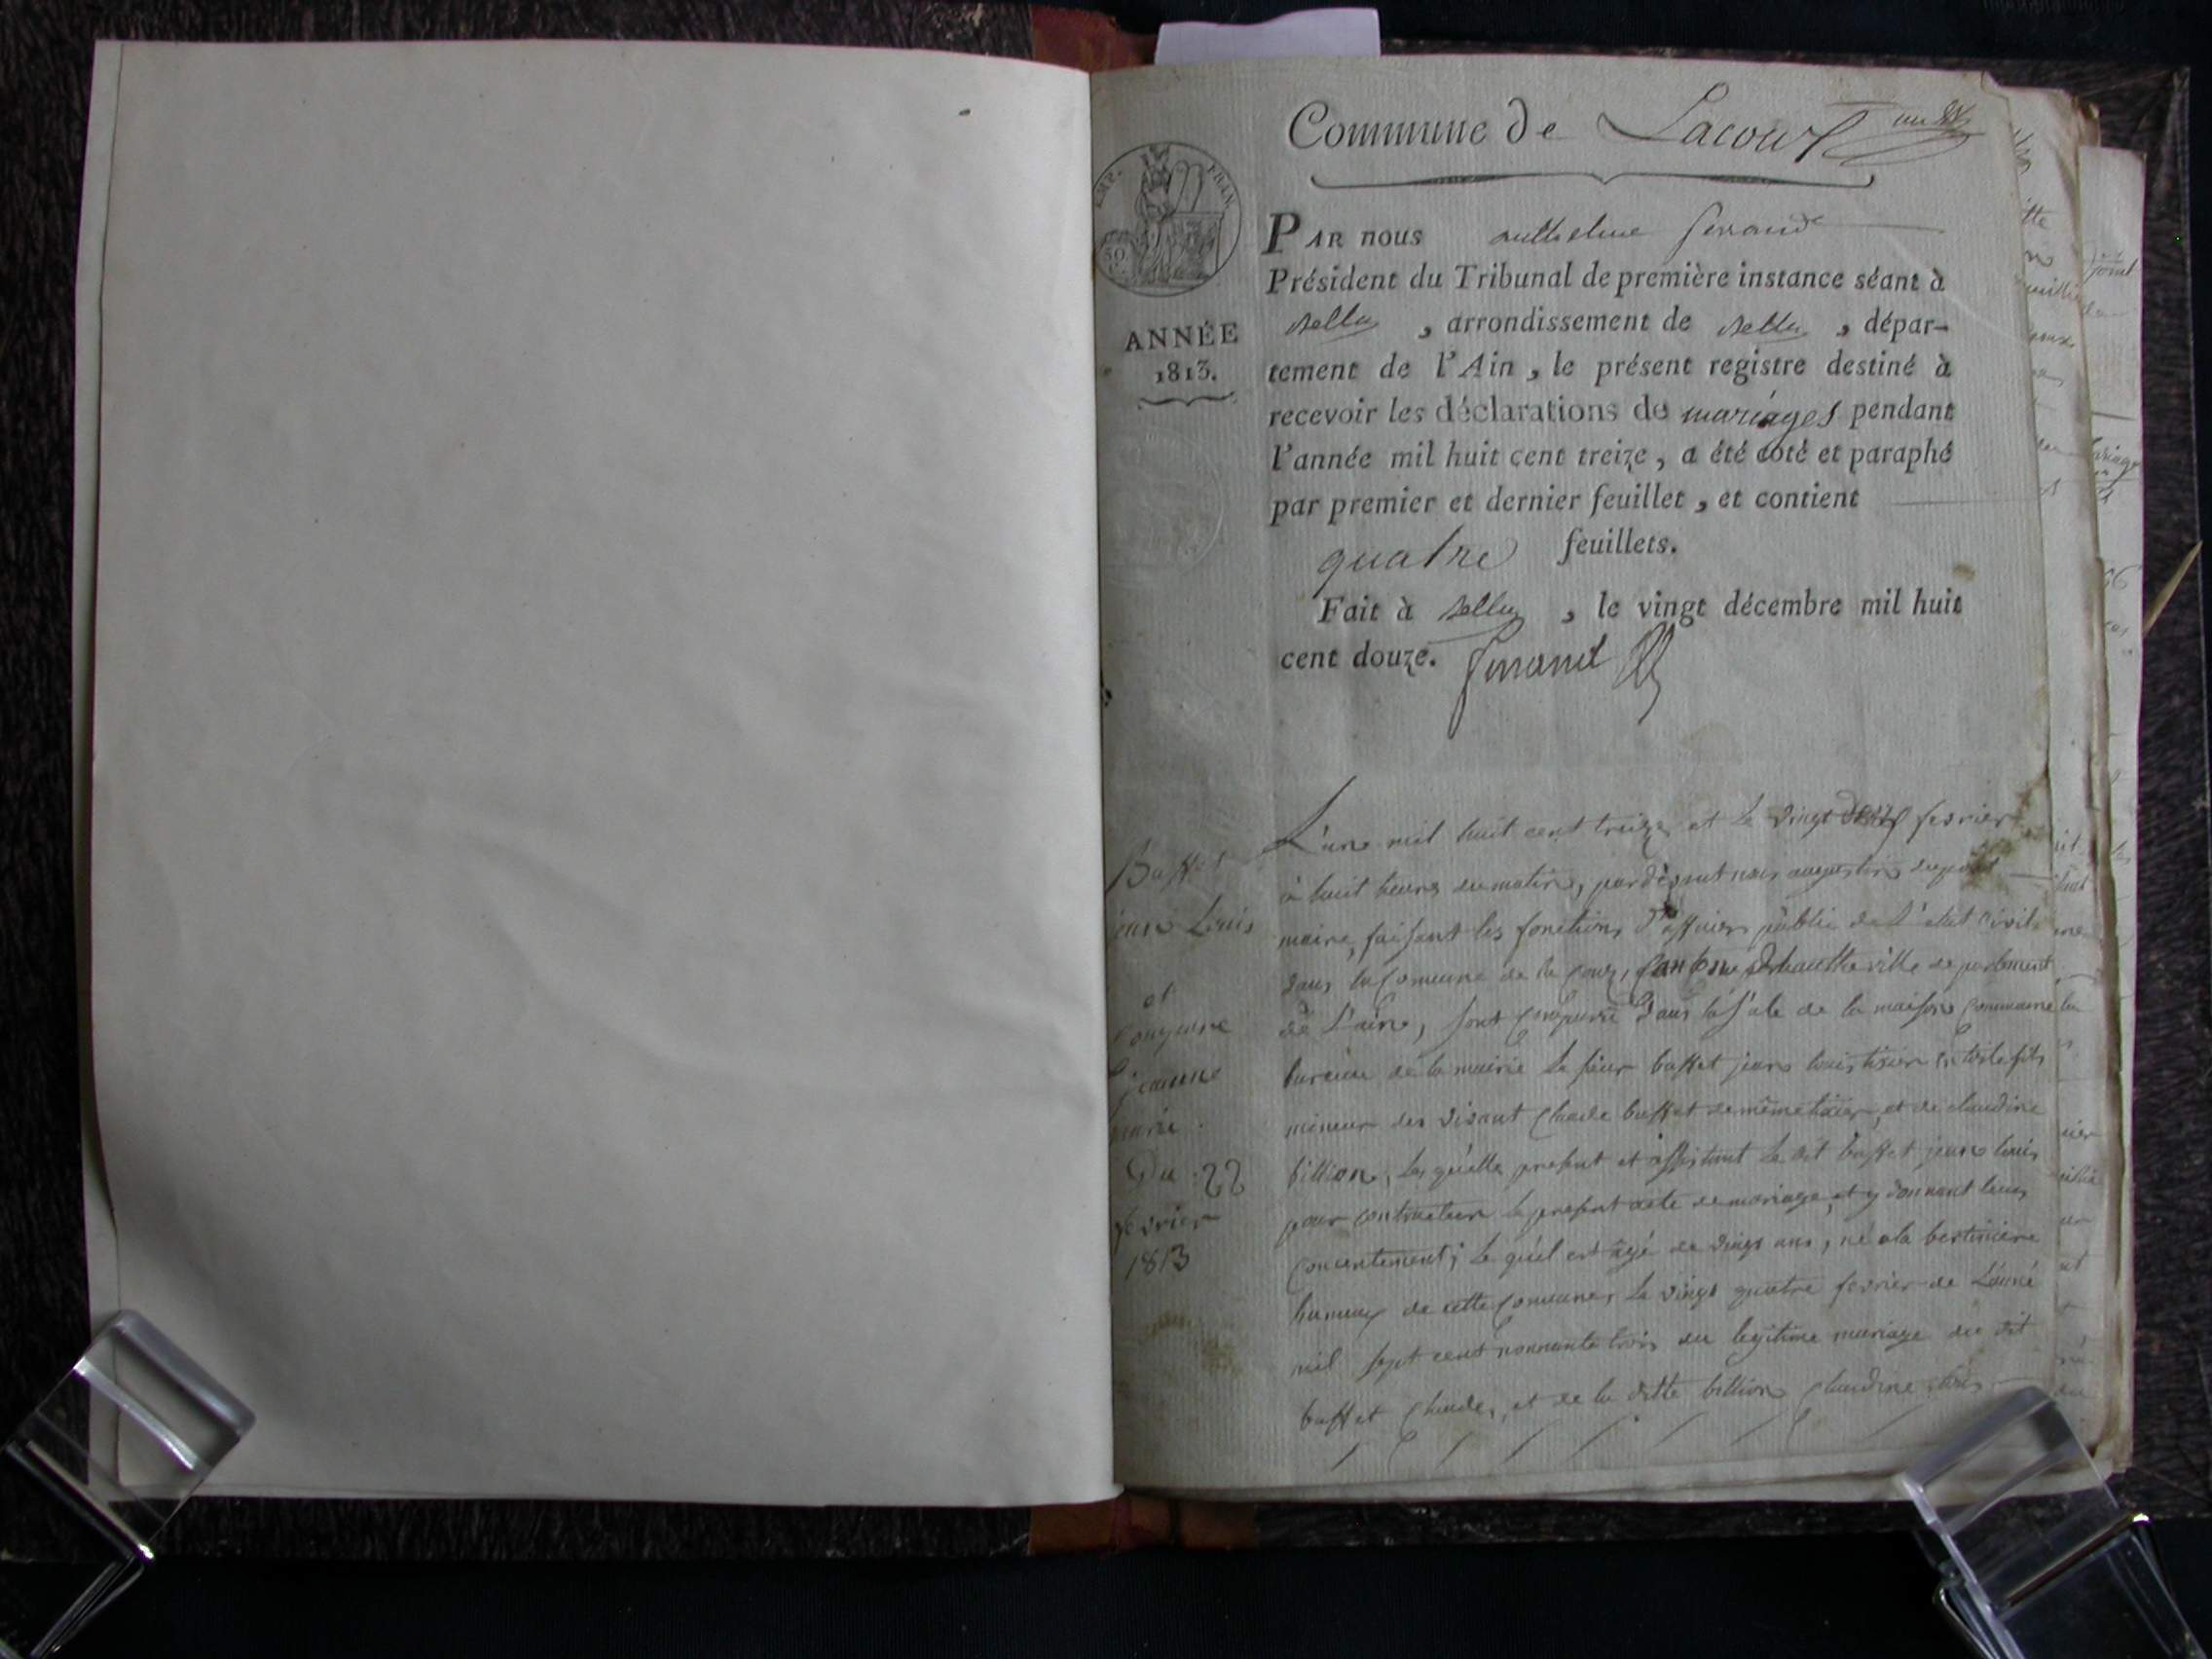 Commune de Lacoux
EMP. FRAN.
50
ANNÉE
1813.
PAR nous Anthelme Ferrand
Président du Tribunal de première instance séant à
Belley, arrondissement de Belley, dépar-
tement de l'Ain, le présent registre destiné à
recevoir les déclarations de mariages pendant
l'année mil huit cent treize, a été coté et paraphé
par premier et dernier feuillet, et contient
quatre feuillets.
Fait à Belley, le vingt décembre mil huit
cent douze. Ferrand
Buffet
jean Louis
et
jeanne
marie.
Du 22
fevrier
1813
L'an mil huit cent treize et le vingt deux fevrier
à huit heures du matin, par devant nous augustin
maire, faisant les fonctions d'officier public de l'etat civil
dans la Comune de la Coux, Canton d'hautteville departement
de L'ain, sont dans la sale de la maison Commune
bureau de la mairie le sieur buffet jean louis tisier en toile fils
mineur des vivant Claude buffet de même et de claudine
billion, les quelle present et assistant le dit buffet jean louis
pour contracter le present acte de mariage, et y donnant leur
concentement; le quel est agé de vingt ans, né a la
hameau de cette Comune, le vingt quatre fevrier de L'anné
mil sept cent nonnante trois du legitime mariage du dit
buffet Claude, et de la ditte billion Claudine